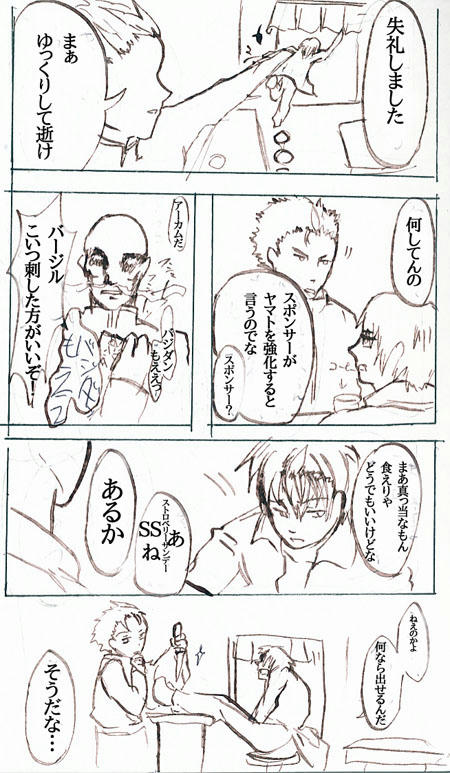 失礼しました
まぁ
ゆっくりして逝け
何してんの
スポンサーが
ヤマトを強化すると
言うのでな
スポンサー?
コーヒー
アーカムだ
バージル
こいつ刺した方がいいぞ!
バジダン
もええっ
まあ真っ当なもん
食えりゃ
どうでもいいけどな
あ
SS
ストロベリーサンデー
ね
あるか
ねぇのかよ
何なら出せるんだ
そうだな…